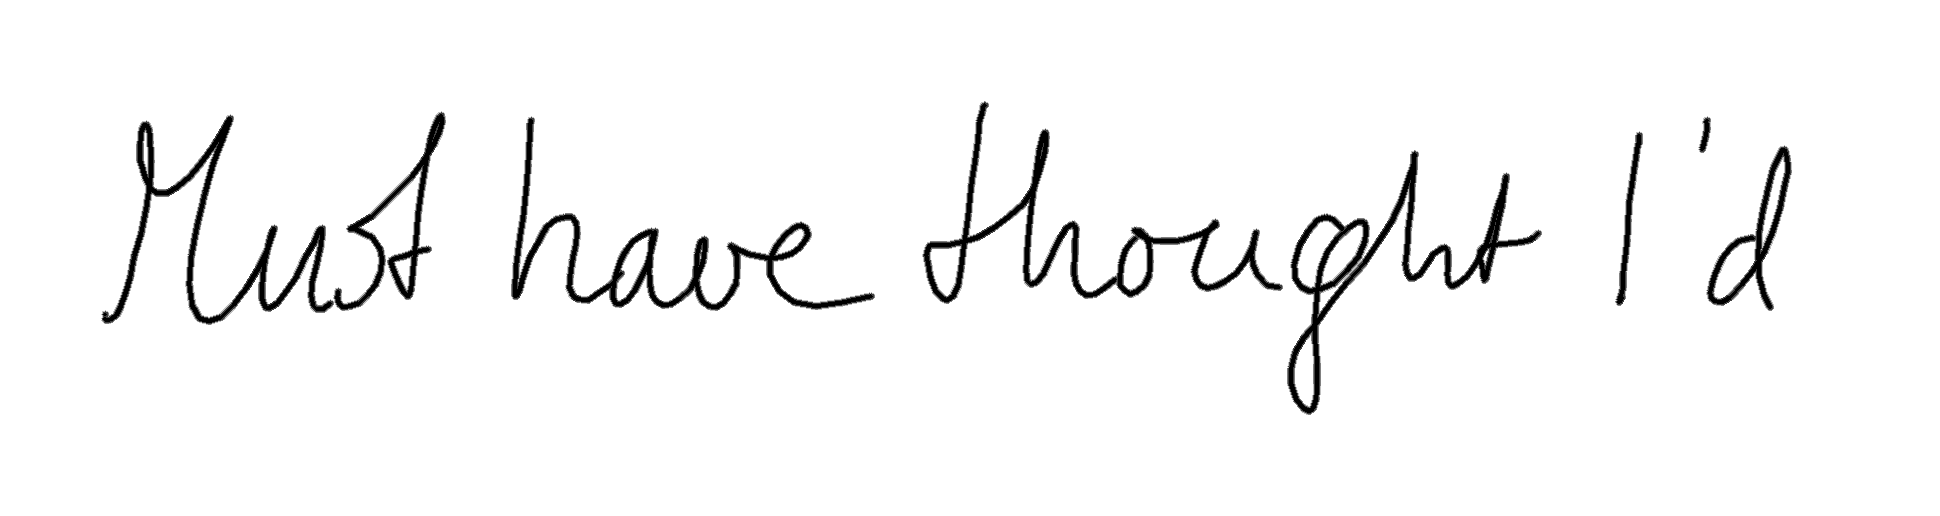 Must have thought I'd